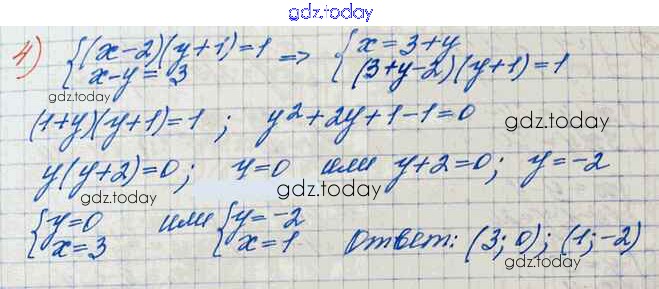 gdz.today
4) { (x-2)(y+1)=1 => { x=3+y
x-y=3 (3+y-2)(y+1)=1
gdz.today
(1+y)(y+1)=1 ; y²+2y+1-1=0
gdz.today
y(y+2)=0; y=0 или y+2=0; y=-2
gdz.today
{ y=0 или { y=-2
x=3 x=1 Ответ: (3; 0); (1;-2)
gdz.today